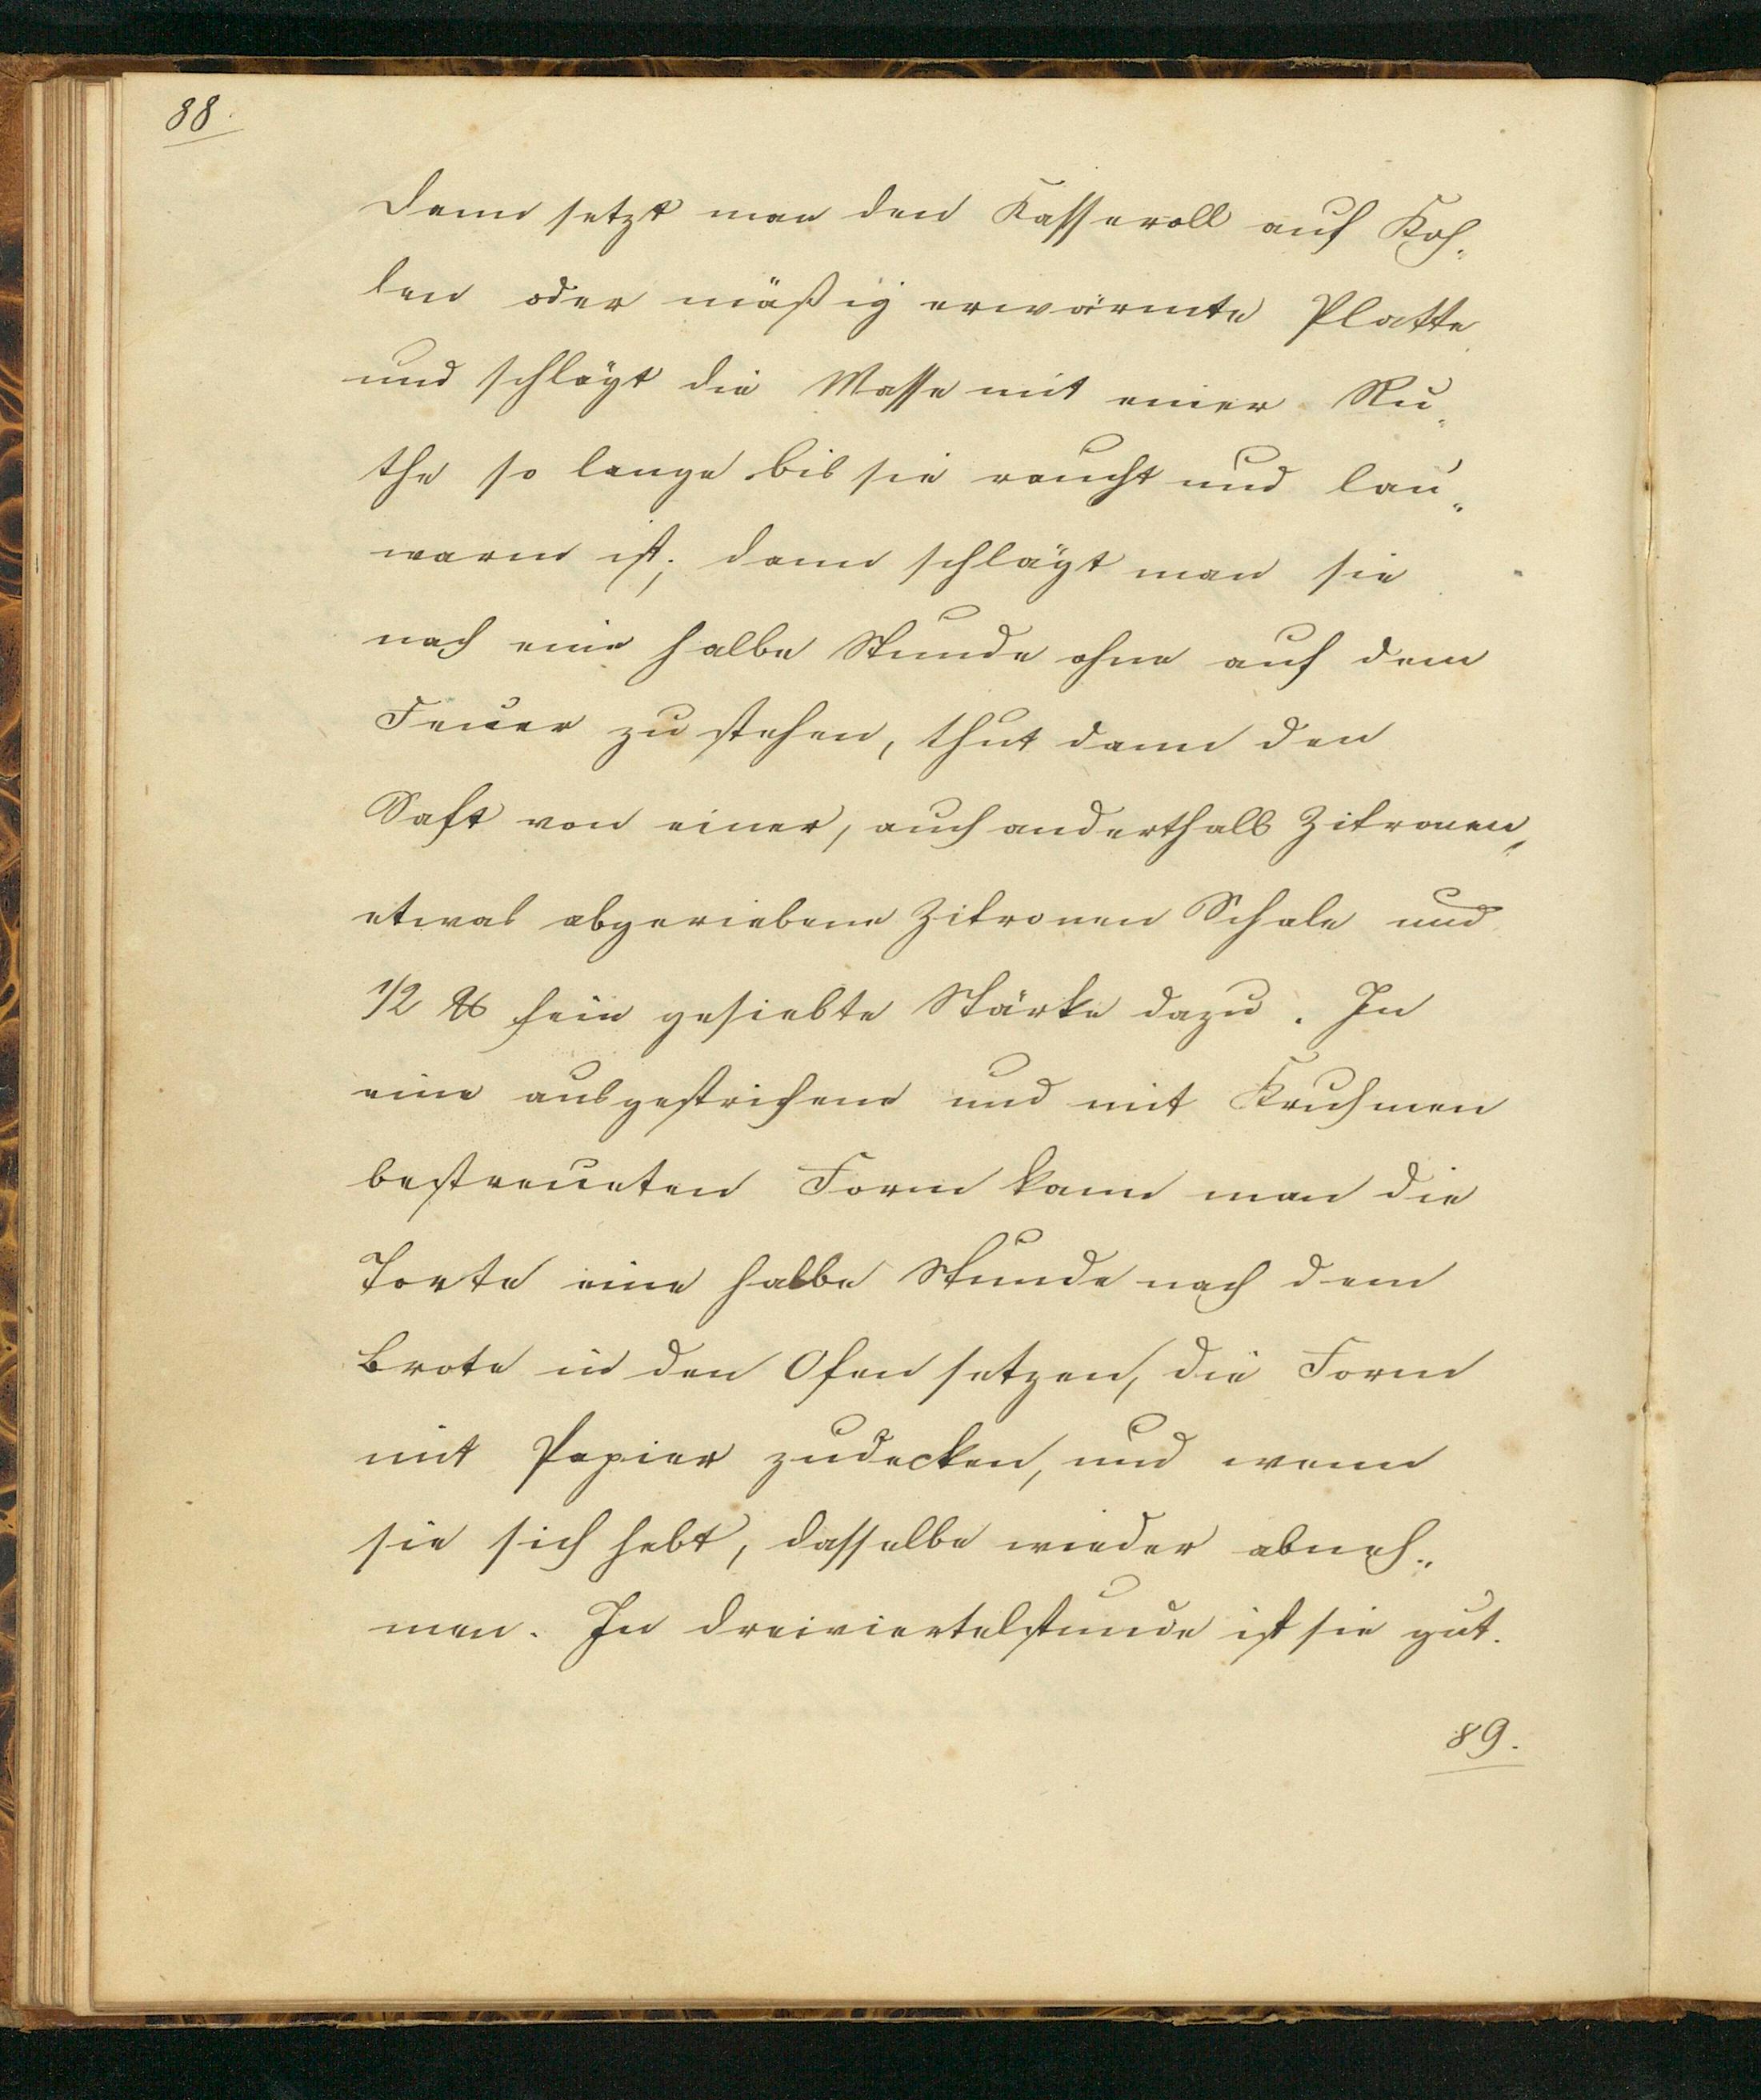 88.
dann setzt man den Kasseroll auf Koh-
len oder mäßig erwärmte Platte
und schlägt die Masse mit einer Ru-
the so lange bis sie raucht und lau-
warm ist; dann schlägt man sie
noch eine halbe Stunde ohne auf dem
Feuer zu stehen, thut dann den
Saft von einer, auch anderthalb Zitronen,
etwas abgeriebene Zitronen Schale und
1/2 ℔ fein gesiebte Stärke dazu. In
eine ausgestrichene und mit Kruhmen
bestreueten Form kann man die
Torte eine halbe Stunde nach dem
Brote in den Ofen setzen, die Form
mit Papier zudecken, und wenn
sie sich hebt, dasselbe wieder abneh-
men. In dreiviertelstunde ist sie gut.
89.